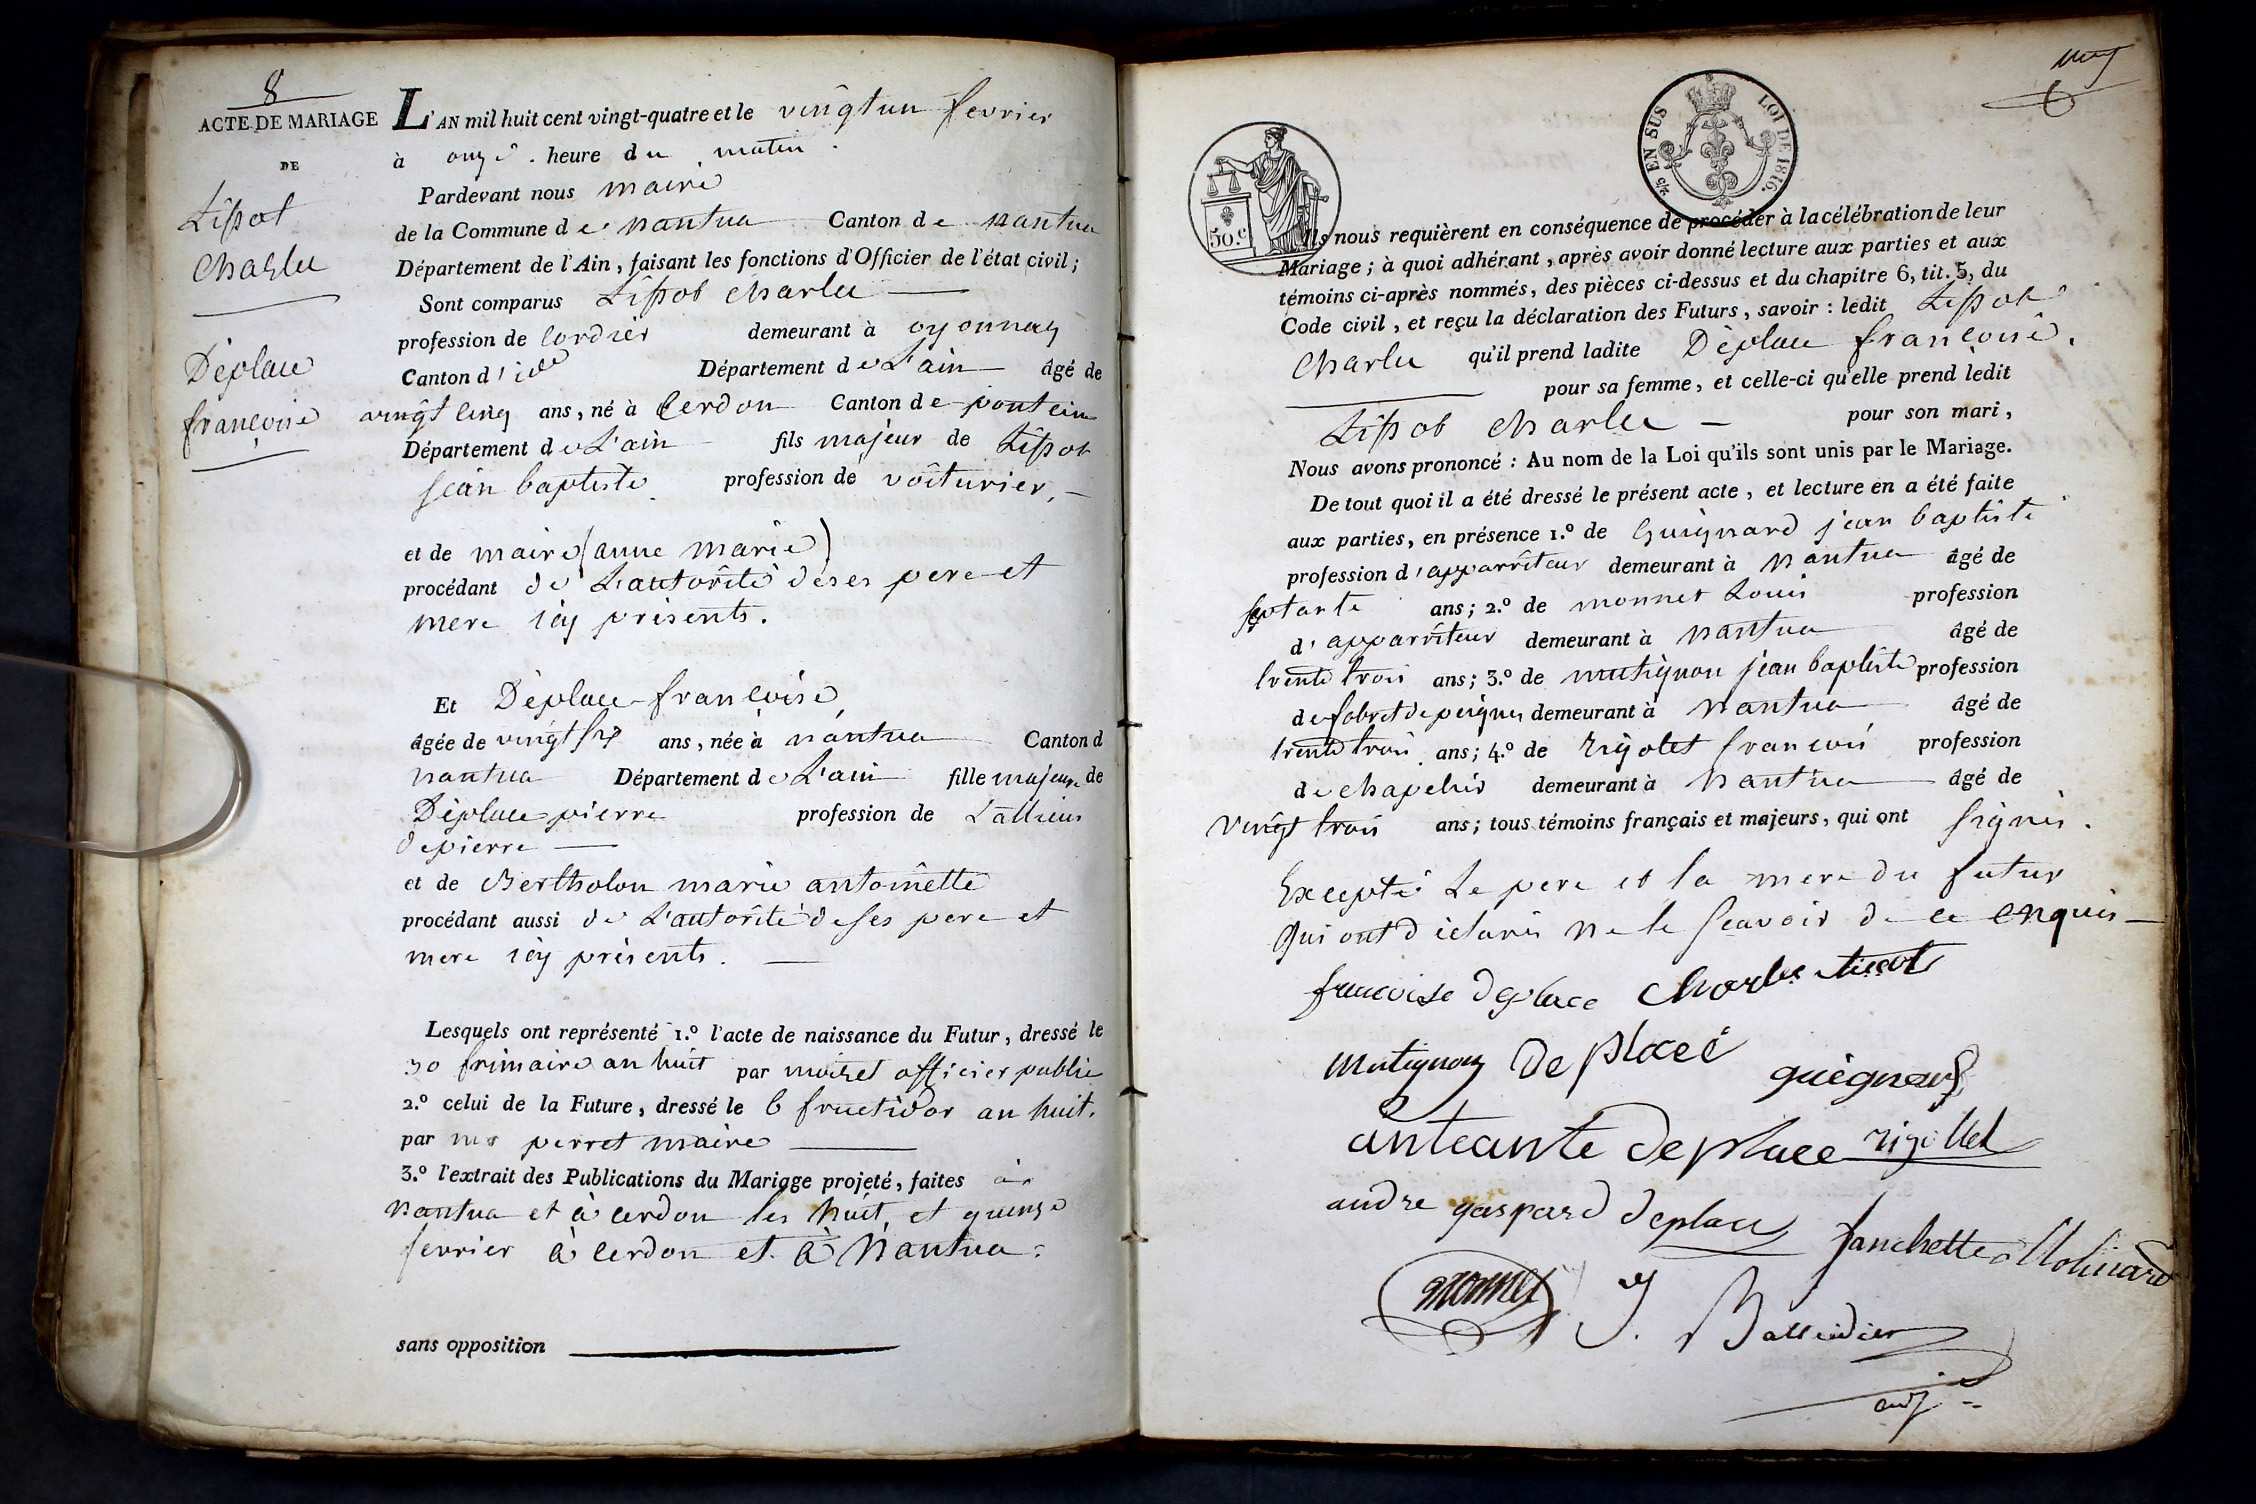 8
ACTE DE MARIAGE
DE
Lissot
Charles
Déplace
françoise
L'AN mil huit cent vingt-quatre et le vingt un fevrier
à onze heure du matin.
Pardevant nous maire
de la Commune de nantua Canton de nantua
Département de l'Ain, faisant les fonctions d'Officier de l'état civil;
Sont comparus Lissot Charles
profession de Cordier demeurant à oyonnay
Canton d' Département de L'ain âgé de
vingt cinq ans, né à Cerdon Canton de poncin
Département de L'ain fils majeur de Lissot
jean baptiste profession de voiturier,
et de maire (anne marie)
procédant de L'autorité de ses pere et
mere icy présents.
Et Déplace françoise
âgée de vingt ans, née à nantua Canton d
nantua Département de L'ain fille majeure de
Déplace pierre profession de tailleur
de pierre
et de Bertholon marie antoinette
procédant aussi de L'autorité de ses pere et
mere icy présents.
Lesquels ont représenté 1.º l'acte de naissance du Futur, dressé le
30 frimaire an huit par officier public
2.º celui de la Future, dressé le 6 fructidor an huit.
par mr perret maire
3.º l'extrait des Publications du Mariage projeté, faites à
nantua et à cerdon les huit et quinze
fevrier à Cerdon et à Nantua.
sans opposition
5/c EN SUS LOI DE 1816.
50.c
Ils nous requièrent en conséquence de procéder à la célébration de leur
Mariage; à quoi adhérant, après avoir donné lecture aux parties et aux
témoins ci-après nommés, des pièces ci-dessus et du chapitre 6, tit. 5, du
Code civil, et reçu la déclaration des Futurs, savoir: ledit Lissot
Charles qu'il prend ladite Déplace françoise.
pour sa femme, et celle-ci qu'elle prend ledit
Lissot Charles pour son mari,
Nous avons prononcé: Au nom de la Loi qu'ils sont unis par le Mariage.
De tout quoi il a été dressé le présent acte, et lecture en a été faite
aux parties, en présence 1.º de Guignard jean baptiste
profession d'apparriteur demeurant à nantua âgé de
septante ans; 2.º de monnet Louis profession
d'apparriteur demeurant à nantua âgé de
trente trois ans; 3.º de mutignon jean baptiste profession
de fabrt de peignes demeurant à nantua âgé de
trente trois ans; 4.º de rigolet françois profession
de chapelier demeurant à nantua âgé de
vingt trois ans; tous témoins français et majeurs, qui ont signés.
Excepté Le pere et la mere du futur
qui ont déclarés ne le scavoir de ce enquis
francoise deplace Charles lissot
mutignon De place guignard
anteante deplace rigollet
andre gaspard deplace fanchette Molinard
monnet J. Ballendier
adj.